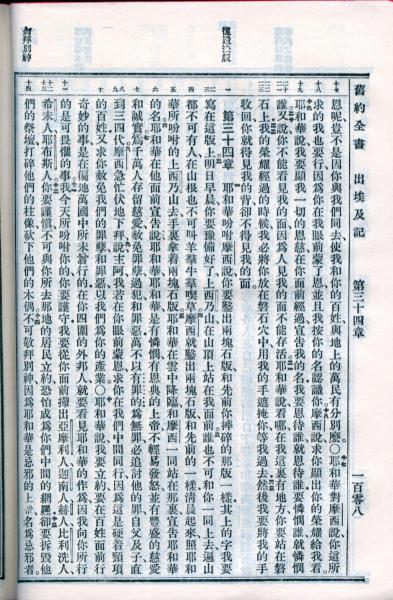 舊約全書 出埃及記 第三十四章 一百零八
恩呢豈不是因你與我們同去使我和你的百姓與地上的萬民有分別麼○耶和華對摩西說你這所
求的我也要行因爲你在我眼前蒙了恩並且我按你的名認識你摩西說求你顯出你的榮耀給我看
耶和華說我要顯我一切的恩慈在你面前經過宣告我的名我要恩待誰就恩待誰要憐憫誰就憐憫
誰又說你不能看見我的面因爲人見我的面不能存活耶和華說看哪在我這裏有地方你要站在磐
石上我的榮耀經過的時候我必將你放在磐石穴中用我的手遮掩你等我過去然後我要將我的手
收回你就得見我的背卻不得見我的面
第三十四章 耶和華吩咐摩西說你要鑿出兩塊石版和先前你摔碎的那版一樣其上的字我要
寫在這版上明日早晨你要豫備好了上西乃山在山頂上站在我面前誰也不可和你一同上去遍山
都不可有人在山根也不可叫羊羣牛羣喫草摩西就鑿出兩塊石版和先前的一樣清晨起來照耶和
華所吩咐的上西乃山去手裏拿着兩塊石版耶和華在雲中降臨和摩西一同站在那裏宣告耶和華
的名耶和華在他面前宣告說耶和華耶和華是有憐憫有恩典的上帝不輕易發怒並有豐盛的慈愛
和誠實爲千萬人存留慈愛赦免罪孽過犯和罪惡萬不以有罪的爲無罪必追討他的罪自父及子直
到三四代摩西急忙伏地下拜說主阿我若在你眼前蒙恩求你在我們中間同行因爲這是硬着頸項
的百姓又求你赦免我們的罪孽和罪惡以我們爲你的產業○耶和華說我要立約要在百姓面前行
奇妙的事是在徧地萬國中所未曾行的在你四圍的外邦人就要看見耶和華的作爲因我向你所行
的是可畏懼的事我今天所吩咐你的你要謹守我要從你面前攆出亞摩利人迦南人赫人比利洗人
希未人耶布斯人你要謹愼不可與你所去那地的居民立約恐怕成爲你們中間的網羅卻要拆毀他
們的祭壇打碎他們的柱像砍下他們的木偶不可敬拜別神因爲耶和華是忌邪的上帝名爲忌邪
復造法版
勿拜別神